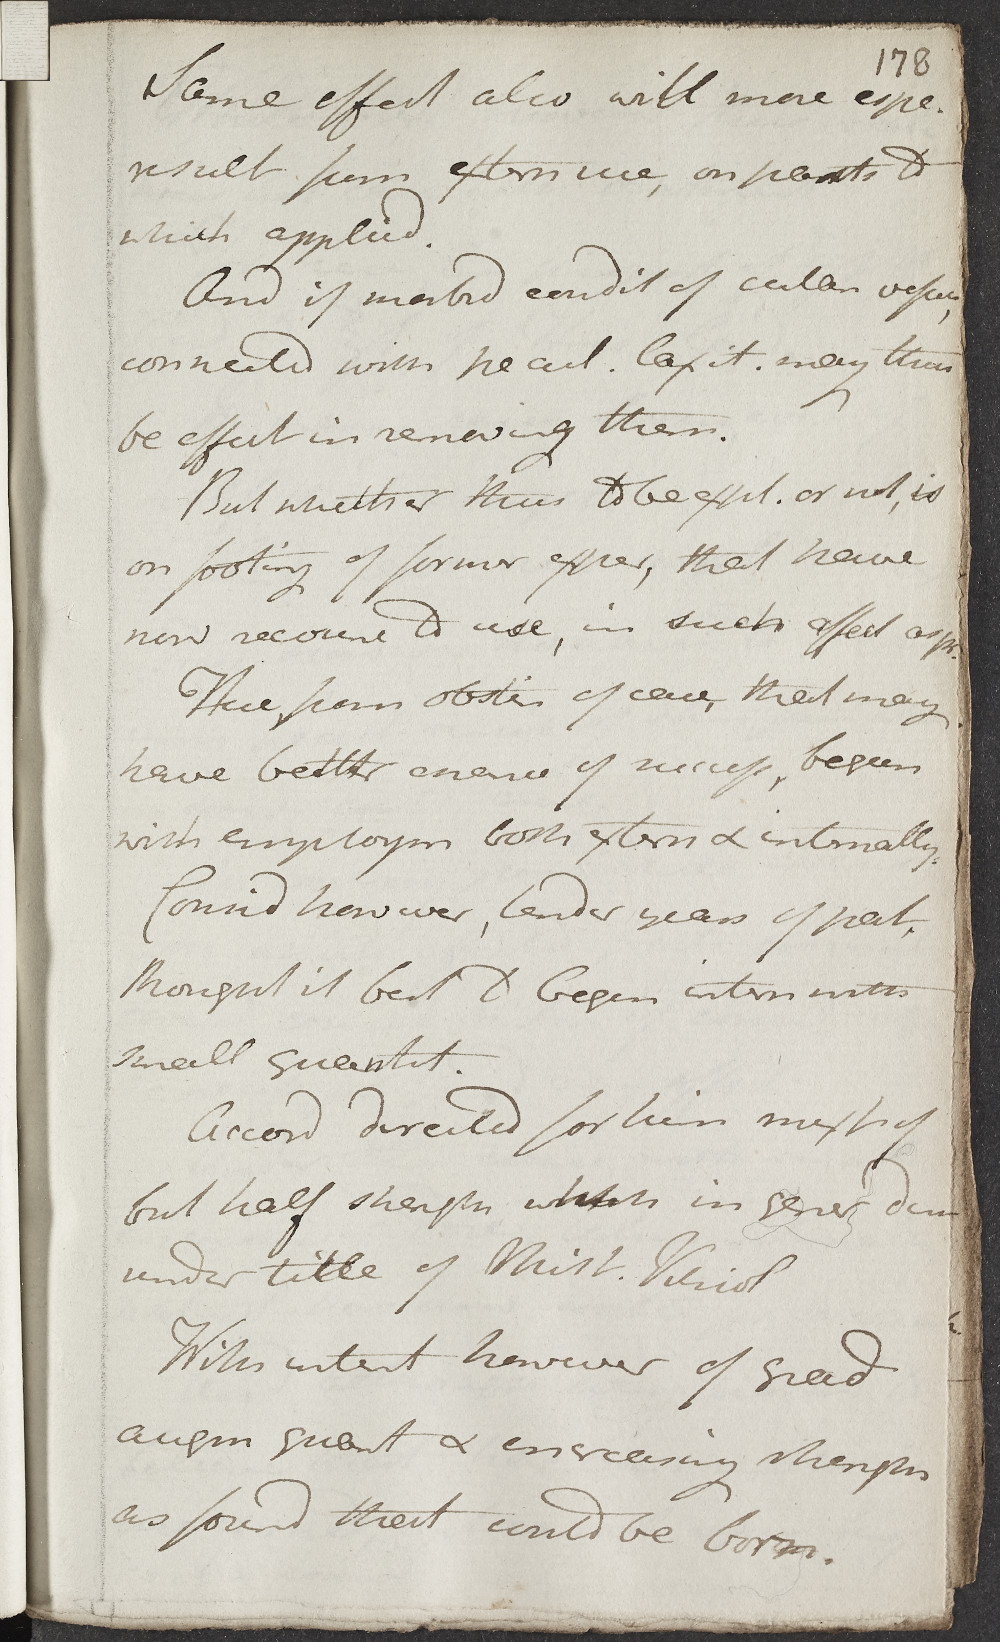 178
Same effect also will more espe.
result from extern use, on parts to
which applied.
And if morbid condit of cutan vessels,
connected with pecul. laxit. may thus
be effect in removing them.
But whether thus to be expl. or not, is
on footing of former exper, that have
now recourse to use, in such affect as pr.
Here, from obstin of case, that may
have better chance of success, begun
with employm both extern & internally.
Consid however, tender years of pat,
thought it best to begin intern with
small quantit.
Accord directed for him mixt of
but half strength which in gener
under title of Mist. Vitriol
With intent however of grad
augm quant & encreasing strength
as found that could be born.